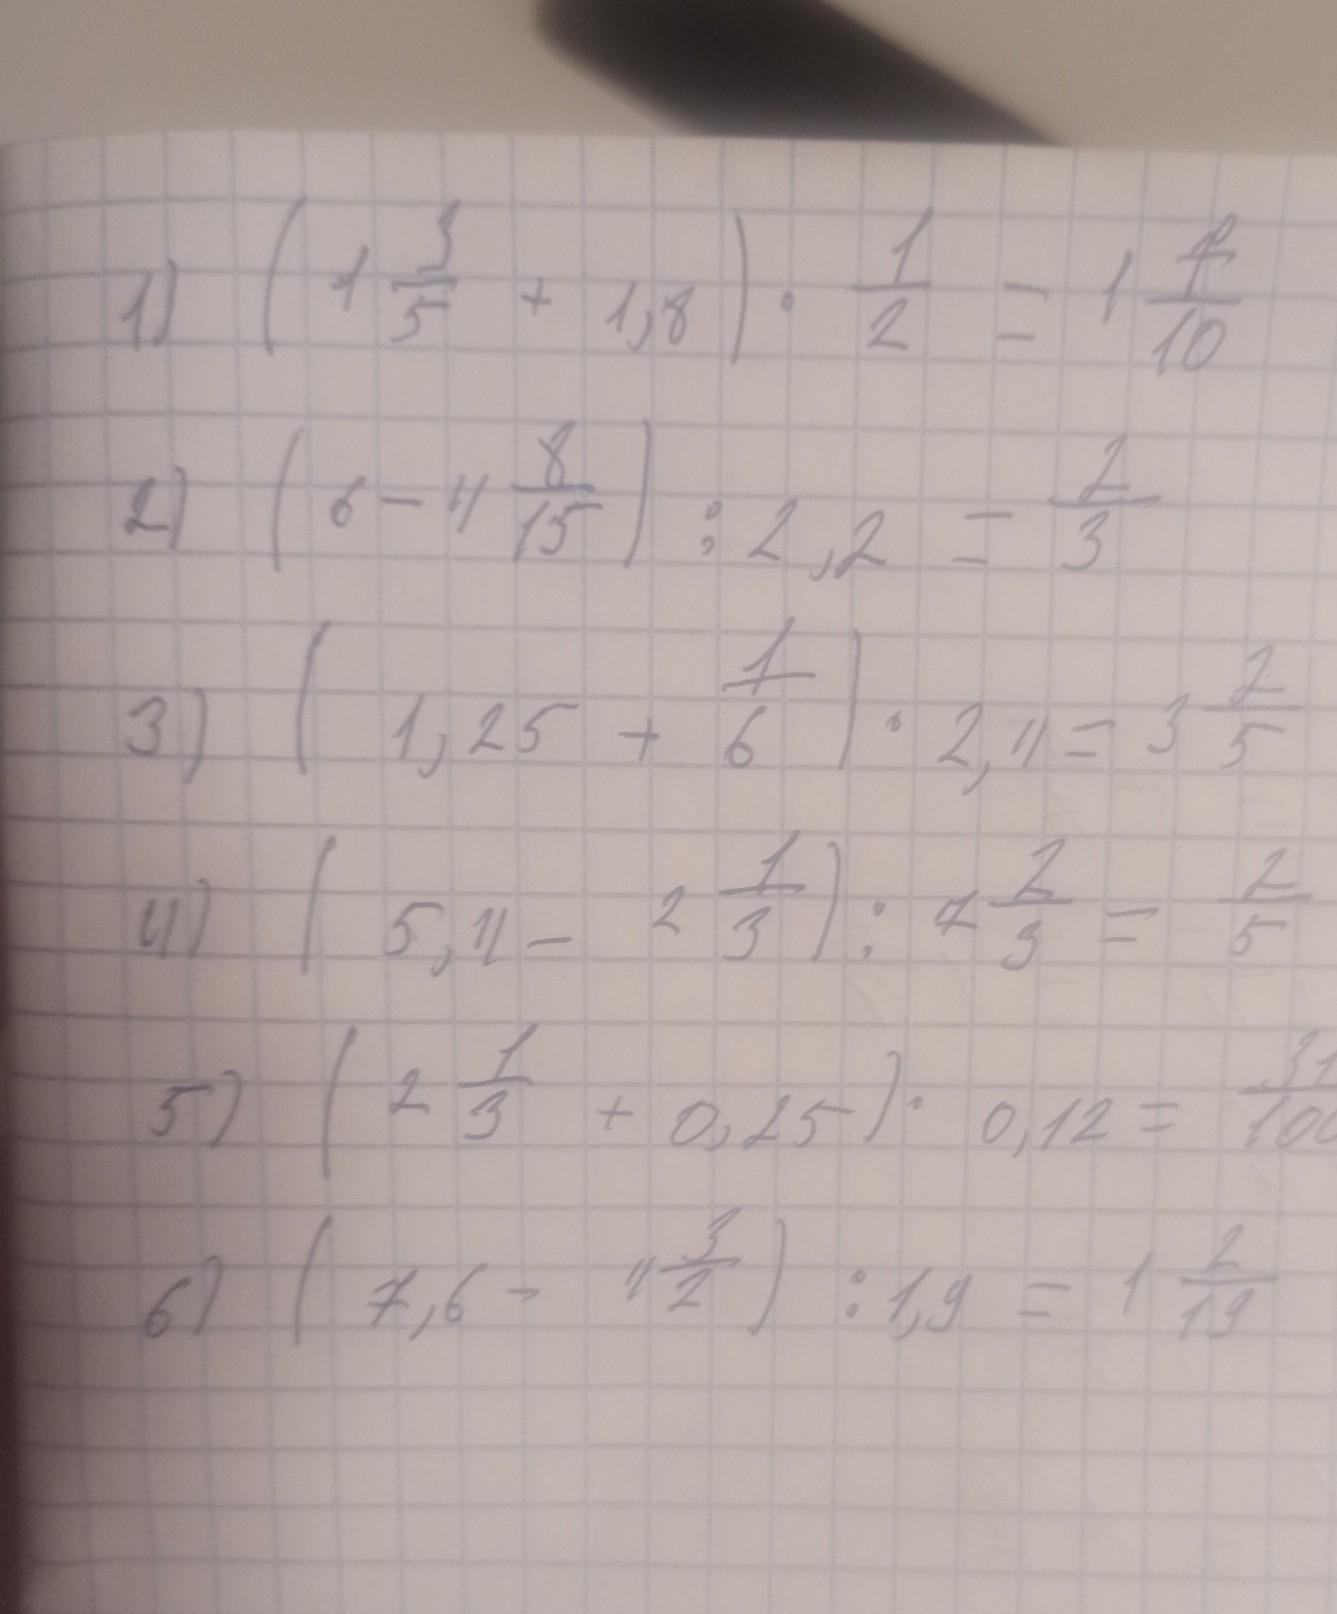 1) (1 3/5 + 1,8) · 1/2 = 1 7/10
2) (6 - 4 8/15) : 2,2 = 2/3
3) (1,25 + 1/6) · 2,4 = 3 2/5
4) (5,4 - 2 1/3) : 7 2/3 = 2/5
5) (2 1/3 + 0,25) · 0,12 = 31/100
6) (7,6 - 4 3/2) : 1,9 = 1 2/19